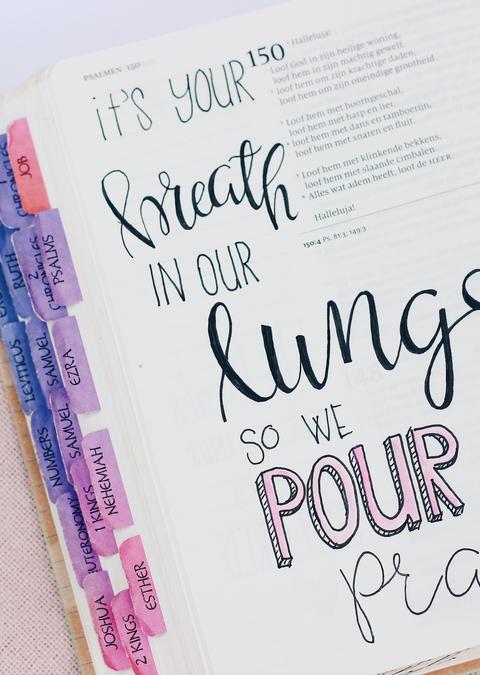 PSALMEN 150
150
Halleluja!
Loof God in zijn heilige woning,
loof hem in zijn machtig gewelf,
loof hem om zijn krachtige daden,
loof hem om zijn oneindige grootheid.
loof hem met hoorngeschal,
loof hem met harp en lier,
loof hem met dans en tamboerijn,
loof hem met snaren en fluit.
Loof hem met klinkende bekkens,
loof hem met slaande cimbalen.
Alles wat adem heeft, loof de HEER.
Halleluja!
150:4 Ps. 81:3; 149:3
IT'S YOUR
breath
IN OUR
lungs
SO WE
POUR
pra
JOB
RUTH
2 CHRONICLES
PSALMS
LEVITICUS
SAMUEL
EZRA
NUMBERS
SAMUEL
1 KINGS
NEHEMIAH
UTERONOMY
JOSHUA
2 KINGS
ESTHER